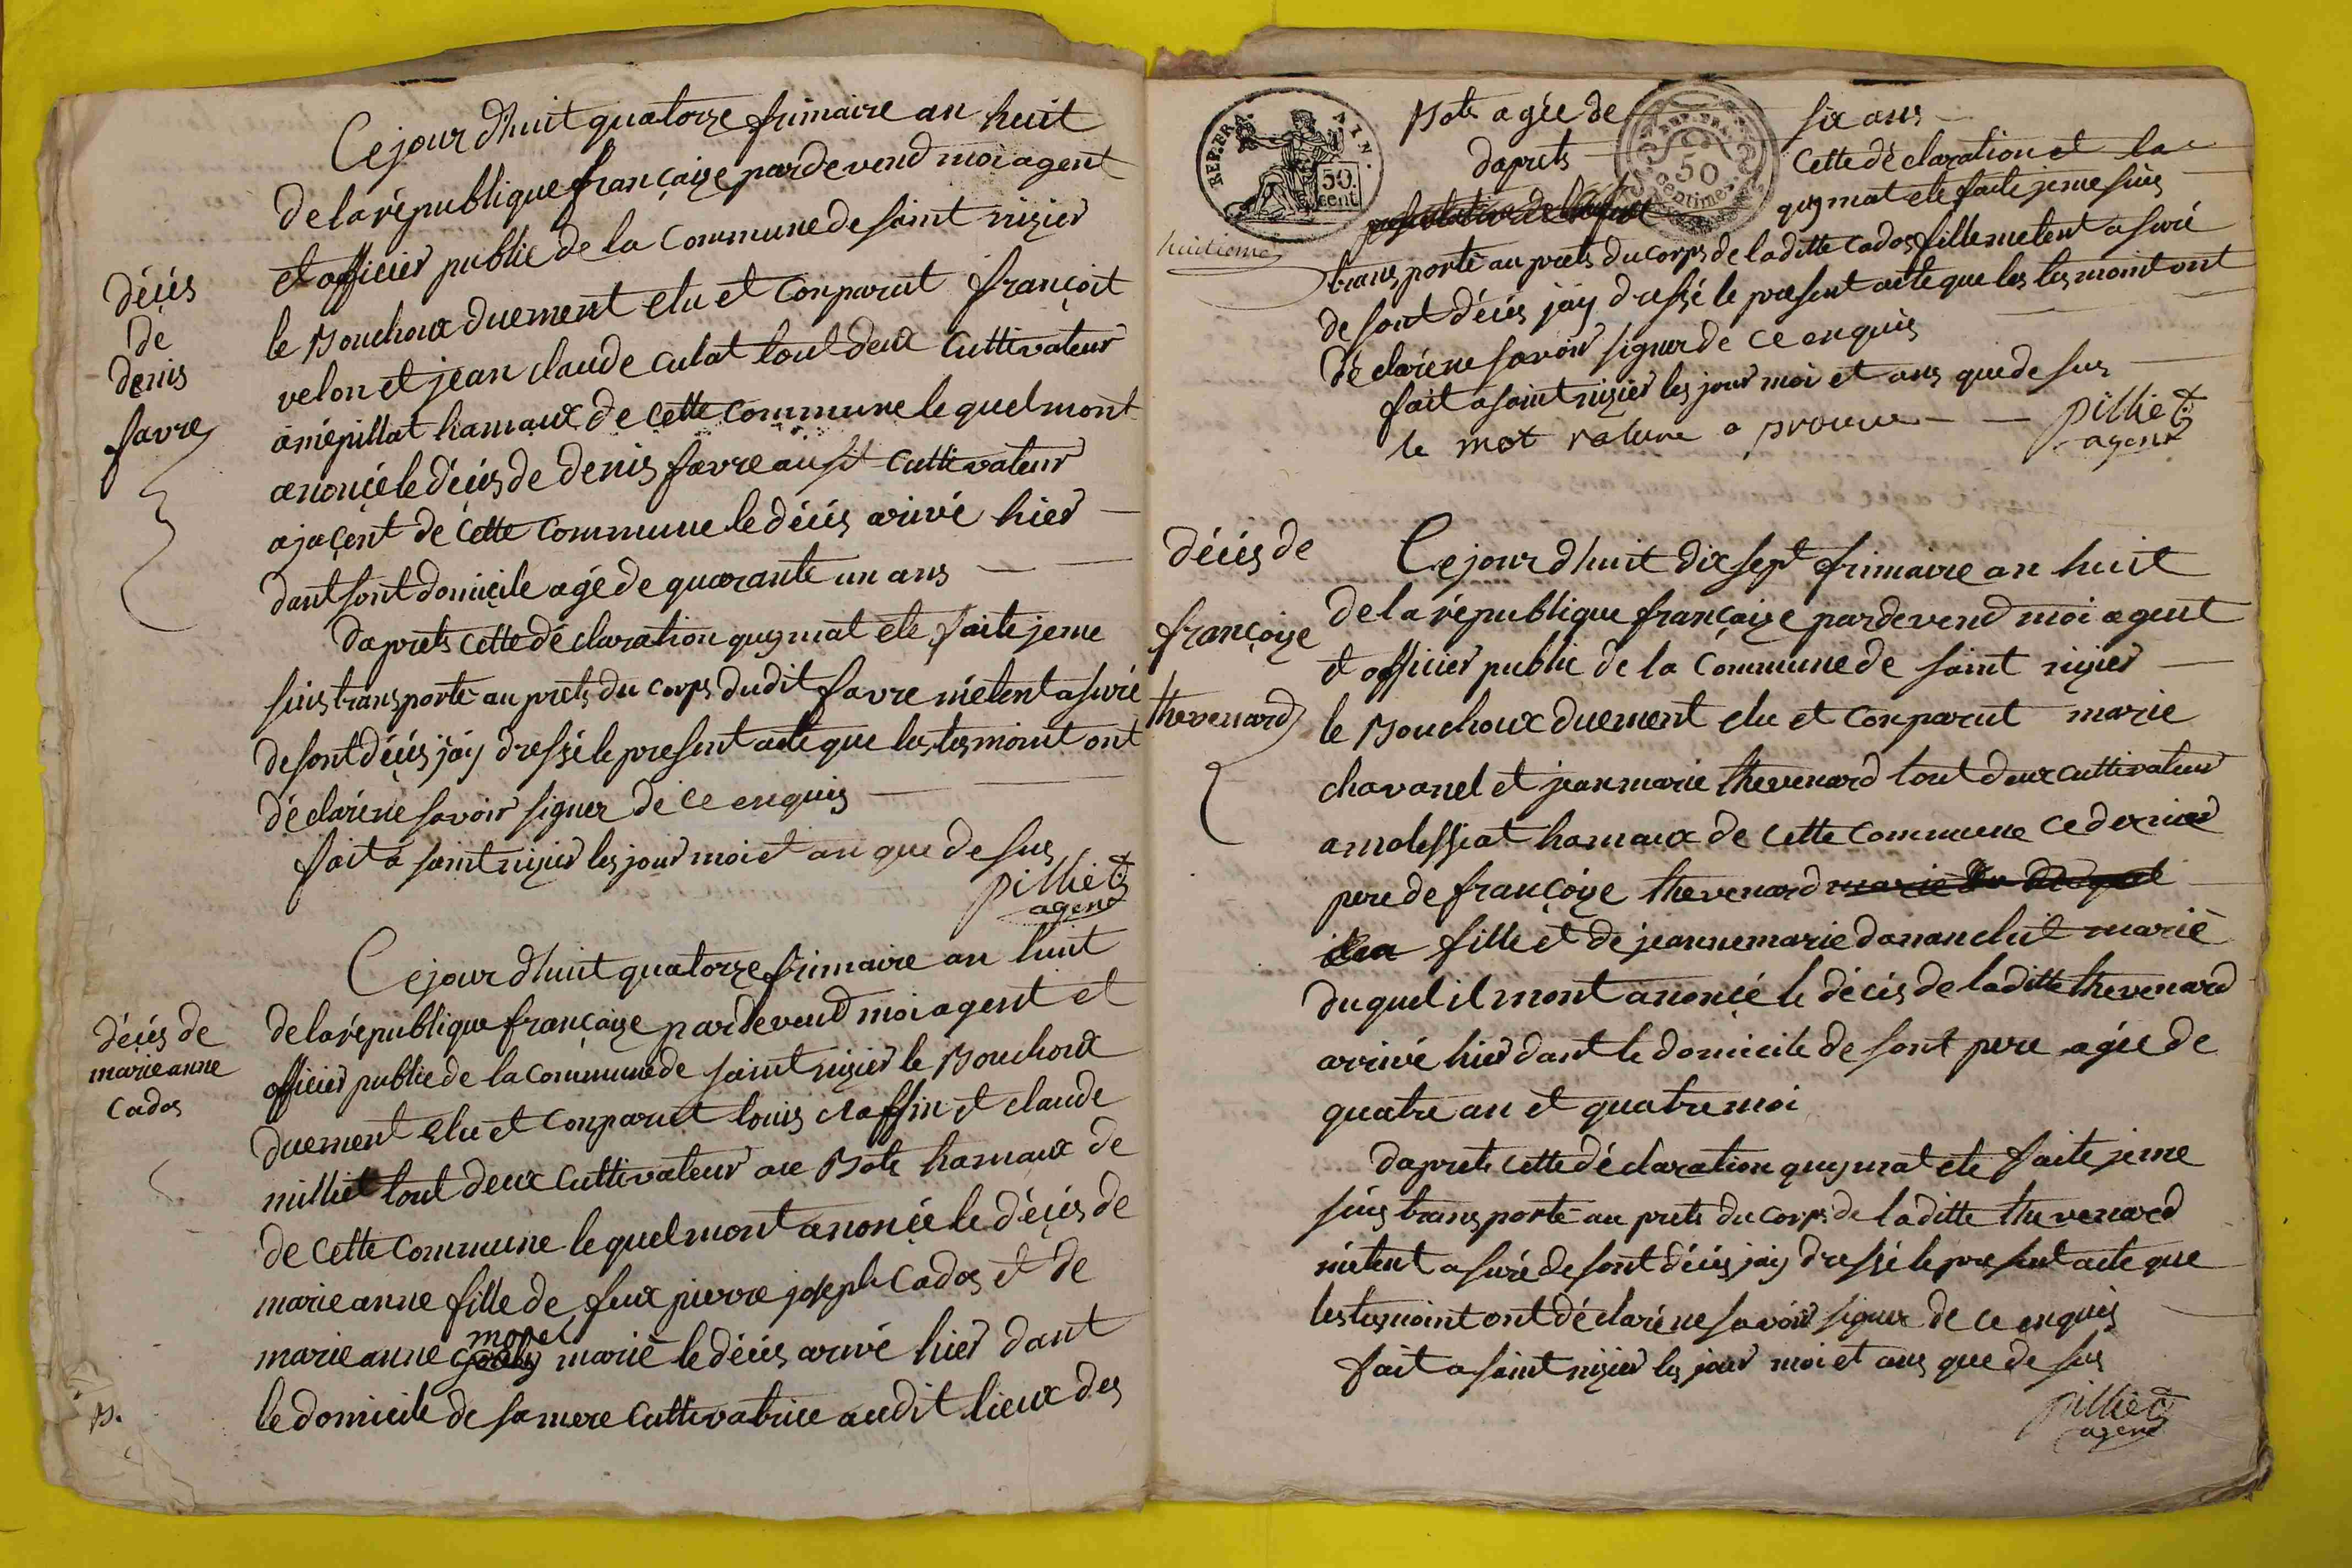 Ce jour dhuit quatorze frimaire an huit
de la république françaize pardevend moi agent
et officier public de la Commune de saint nizier
le Bouchoux duement elu et Conparut françoit
velon et jean claude culat tout deux Cultivateur
a mépillat hamaux de cette commune lequel mont
anoncé le décés de denis favre ausit Cultivateur
ajaçent de Cette Commune le décés arivé hier
dant sont domicile agé de quarante un ans
daprets cette déclaration quy mat ete faite je me
suis transporté au prets du corps dudit favre métent asuré
de sont décés jáy dressé le present acte que les tesmoint ont
déclaré ne savoir signer de ce enquis
fait á saint nizier les jour moi et an que de sus
pilliet
agent
décés
de
denis
favre
Ce jour dhuit quatorze frimaire an huit
de la république françaize pardevend moi agent et
officier public de la Commune de saint nizier le Bouchoux
duement Elu et Conparut louis claffin et claude
milliet tout deux Cultivateur au Bots hamaux de
de Cette Commune lequel mont anoncé le décés de
marie anne fille de feux pierre joseph Cados et de
morel
marie anne marié le décés arivé hier dant
le domicile de sa mere Cultivatrice audit lieux des
décés de
marie anne
Cados
B.
REP. FRA. AIN.
50.
cent.
REP. FRA.
50
Centimes
Bots agée de six ans
daprets Cette déclaration et la
quy mat ete faite je me suis
huitieme
transporté au prets du corps de laditte Cados fille metent asuré
de sont décés jáy dressé le present acte que les tesmoint ont
déclaré ne savoir signer de ce enquis
fait a saint nizier les jour moi et ans que de sus
le mot rature a prouve
pilliet
agent
décés de
françoize
thevenard
Ce jour dhuit dix sept frimaire an huit
de la république françaize pardevend moi agent
et officier public de la Commune de saint nizier
le Bouchoux duement elu et Conparut marie
chavanel et jean marie thevenard tout deux cultivateur
a molessiat hamaux de cette Commune ce dernier
pere de françoize thevenard
fille et de jeanne marie donanchit marié
duquel il mont anoncé le décés de laditte thevenard
arrivé hier dant le domicile de sont pere agée de
quatre an et quatre moi
daprets cette déclaration quy mat ete faite je me
suis transporté au prets du corps de laditte thevenard
métent asuré de sont décés jay dressé le present acte que
les tesmoint ont déclaré ne savoir signer de ce enquis
fait a saint nizier les jour moi et ans que de sus
pilliet
agent